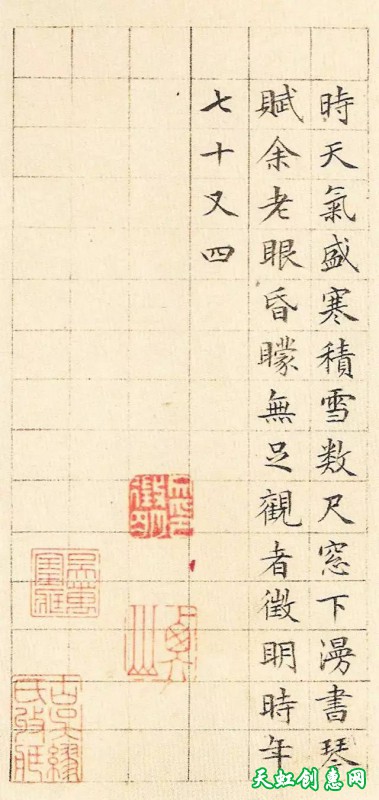 時天氣盛寒積雪数尺窓下漫書琴
賦余老眼昏矇無足觀者徵明時年
七十又四
天虹创惠网